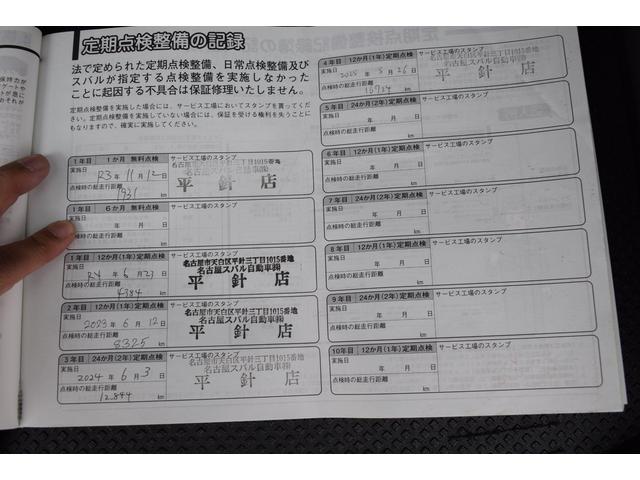 定期点検整備の記録
法で定められた定期点検整備、日常点検整備及び
スバルが指定する点検整備を実施しなかった
ことに起因する不具合は保証修理いたしません。
定期点検整備を実施した場合には、サービス工場においてスタンプを貰ってく
ださい。定期点検整備を実施していない場合には、保証を受ける権利を失うことに
もなりますので、確実に実施してください。
1年目 1か月 無料点検 サービス工場のスタンプ
名古屋市天白区平針三丁目1015番地
実施日 R3年 11月 12日
名古屋スバル自動車㈱
点検時の総走行距離
平針店
1921 km
1年目 6か月 無料点検 サービス工場のスタンプ
実施日 年 月 日
点検時の総走行距離 km
1年目 12か月(1年)定期点検 サービス工場のスタンプ
名古屋市天白区平針三丁目1015番地
実施日 R4年 6月 27日
名古屋スバル自動車㈱
点検時の総走行距離
平針店
4384 km
2年目 12か月(1年)定期点検 サービス工場のスタンプ
名古屋市天白区平針三丁目1015番地
実施日 2023年 6月 12日
名古屋スバル自動車㈱
点検時の総走行距離
平針店
8325 km
3年目 24か月(2年)定期点検 サービス工場のスタンプ
名古屋市天白区平針三丁目1015番地
実施日 2024年 6月 3日
名古屋スバル自動車㈱
点検時の総走行距離
平針店
12,844 km
4年目 12か月(1年)定期点検 サービス工場のスタンプ
実施日 2025年 5月 26日
名古屋スバル自動車㈱
点検時の総走行距離
平針店
km
5年目 24か月(2年)定期点検 サービス工場のスタンプ
実施日 年 月 日
点検時の総走行距離 km
6年目 12か月(1年)定期点検 サービス工場のスタンプ
実施日 年 月 日
点検時の総走行距離 km
7年目 24か月(2年)定期点検 サービス工場のスタンプ
実施日 年 月 日
点検時の総走行距離 km
8年目 12か月(1年)定期点検 サービス工場のスタンプ
実施日 年 月 日
点検時の総走行距離 km
9年目 24か月(2年)定期点検 サービス工場のスタンプ
実施日 年 月 日
点検時の総走行距離 km
10年目 12か月(1年)定期点検 サービス工場のスタンプ
実施日 年 月 日
点検時の総走行距離 km